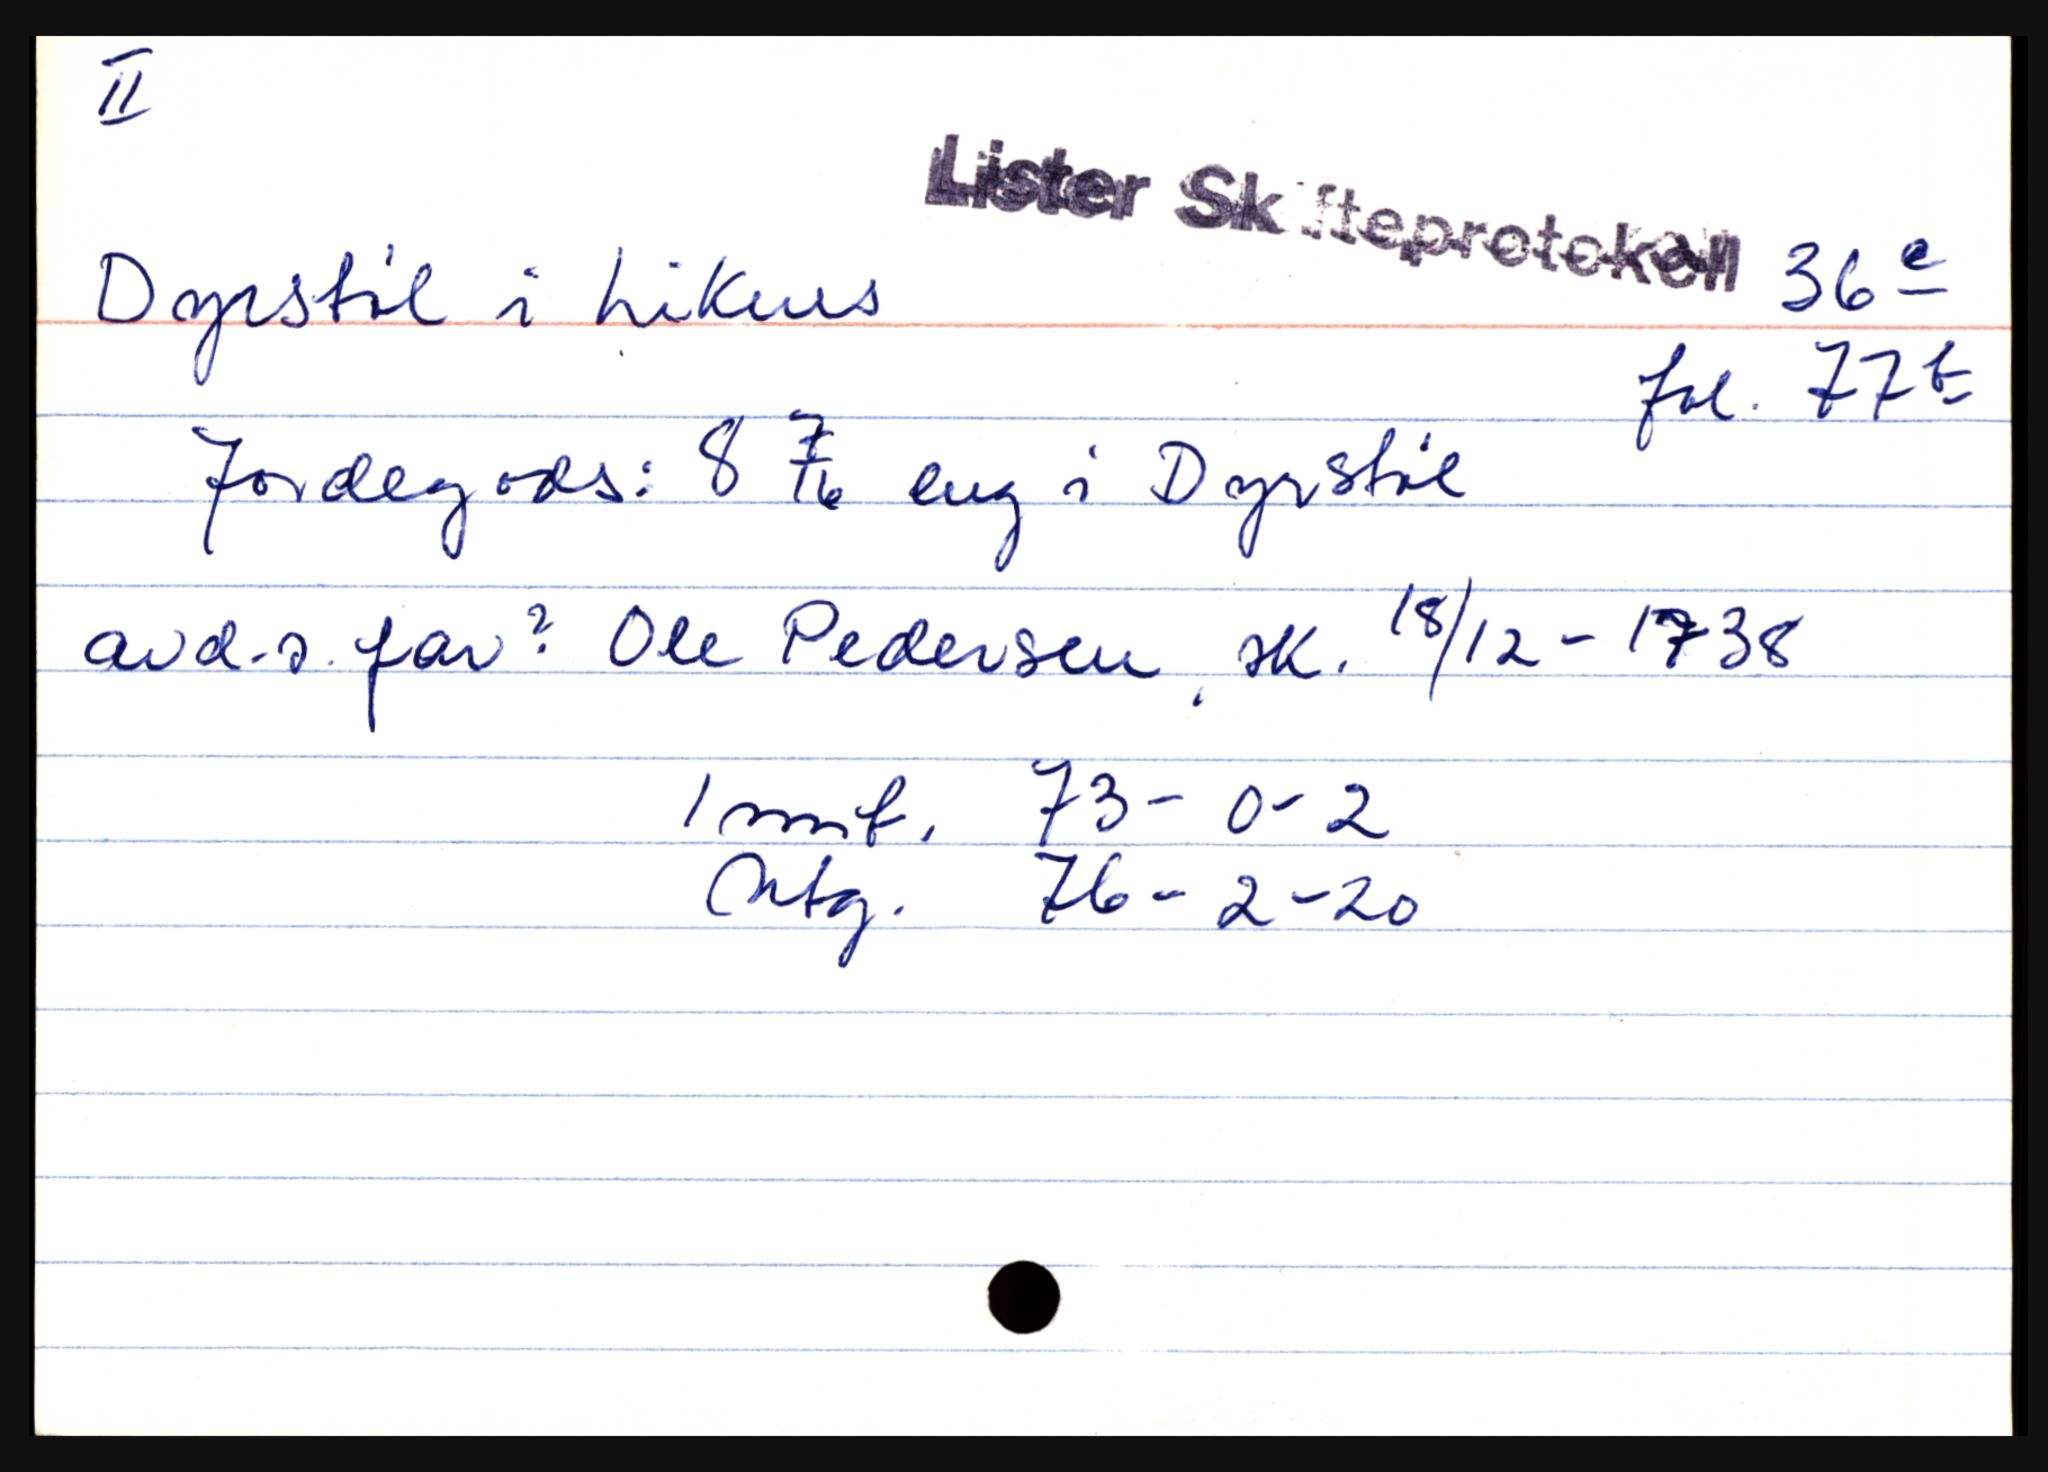 II
Lister Skifteprotokoll 36e
Dyrstøl i Liknes
fol. 77b
Jordegods: 8 7/16 eng i Dyrstøl
avd.s. far? Ole Pedersen, sk. 18/12 - 1738
1 mnt. 73 - 0 - 2
Utg. 76 - 2 - 20